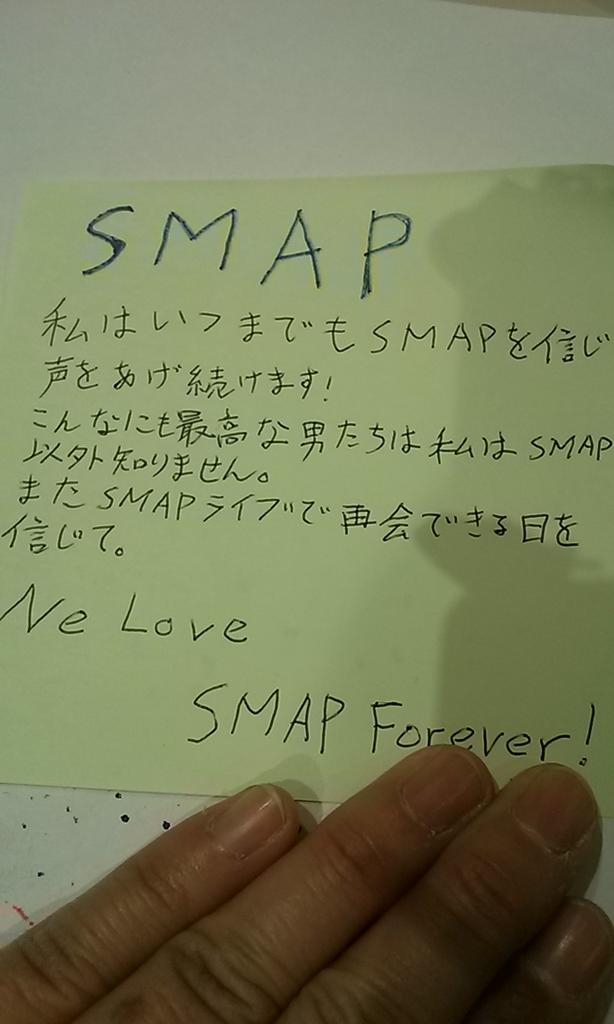 SMAP
私はいつまでもSMAPを信じ
声をあげ続けます!
こんなにも最高な男たちは私はSMAP
以外知りません。
またSMAPライブで再会できる日を
信じて。
Ne Love
SMAP Forever!